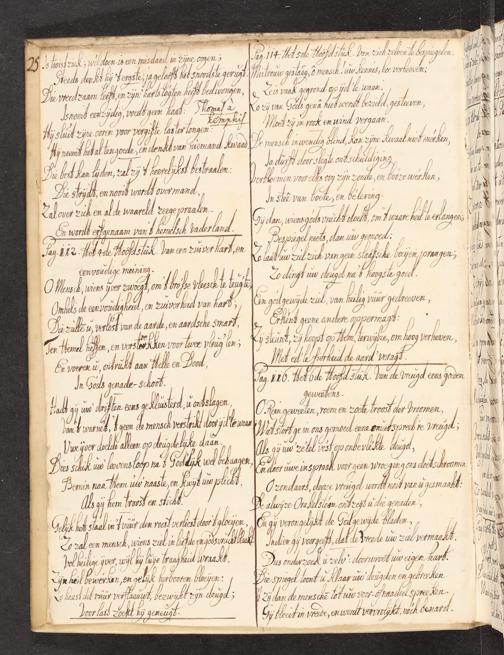 25
Steeds denkt hij 't ergste, ja gelooft het snoodste gerugt.
Die vreedzaam leeft, en zijn hartstogten heeft bedwongen,
Is nooit eenzijdig, voedt geen haat.
Thomas à
Kempis
Hij sluit zijne ooren voor vergifte lastertongen:
Hij neemt het al ten goede, en denkt van niemand kwaad.
Die best kan lijden, zal zij 't heerelijkst bestraalen:
Die strijdt, en nooit wordt overmand,
Zal over zich en al de waereld zeegepraalen.
En wordt erfgenaam van 't hemelsch vaderland.
Pag. 112. Het 4de Hoofdstuk. Van een zuiver hart, en
eenvoudige mening.
O Mensch, wiens ziel zwoegt, om 't broosje vleesch te
Omhels de eenvoudigheid, en zuiverheid van hart,
Die zullen u, verlost van de aarde, en aardsche smart,
Ten Hemel heffen, en verstrekken voor twee vleug'len;
En voeren u, ontrukt aan Helle en Dood,
In Gods genade-schoot.
Hadt gij uw driften eens gekluisterd, u ontslagen
van 't geen de mensch verstrikt door
Uw ijver doelde alleen op deugdelijke daân.
Dus schikt uw levensloop na 't Godlijk welbehaagen,
Bemin naar Hem uw naaste, en kwijt uw plicht,
Als gij hem troost en sticht.
Gelijk het staal in 't vuur den roest verliest door 't gloeijen,
Zo zal een mensch, wiens ziel in liefde en
Vol heilige ijver, wijl hij luije traagheid wraakt,
Zijn heil bewerken, en gelijk herbooren bloeijen:
Zo haast dit vuur verflaauwt, bezwijkt zijn deugd;
Voor last zoekt hij geneugt.
Pag. 114. Het 5de Hoofdstuk. Van zich zelven te bespiegelen.
Mistrouw gestaag, o mensch! uw kennis, hoe verheven;
Ze is vaak gegrond op ijd'le waan.
Zo zij van Gods geest niet wordt bezield, gesteven,
Moet zij in rook en wind vergaan.
De mensch inwendig blind, kan zijne kwaal niet merken,
Ja dieft door slegte ontschuldiging
Verbloemen voor elks oog zijn zonde, en booze werken,
In steê van boete, en betering.
Gij dan, wiens gods vrucht doelt, om 't waar heil te erlangen,
Bespiegel niets, dan uw gemoed.
Zo laat uw ziel zich van geen staatsche boeijen prangen;
Zo dingt uw deugd na 't hoogste goed.
Een godgewijde ziel, van heilig vuur gedreeven,
Erkent geene andere oppermagt:
Zij steunt, zij hoopt op Hem, terwijle, om hoog verheven,
Met eed'le fierheid de aard veragt.
Pag. 116. Het 6de Hoofdstuk. Van de vreugd eens goeden
gewetens.
O Rein geweeten, roem en zoete troost der vroomen,
Wat stort ge in ons gemoed een onuitspreekb're vreugd;
Als gij uw zetel vest op onbevlekte deugd,
En door uwe inspraak voor geen wroegingen doet schroomen.
O zondaars, deze vreugd wordt nooit van u gesmaakt:
De alwijze Oneindige ontzegt u die genaden;
En gij verongelijkt de Godgewijde bladen,
Indien gij voorgeeft, dat de Vrede uw ziel vermaakt.
Dus onderzoek u zelv': doorwroet uw eigen hart.
Die spiegel toont u klaar uw deugden en gebreken.
Gij blieft in vreede, en wordt vertroost, noch benard.